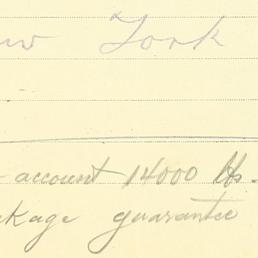 York
account 14000 lbs.
guarantee